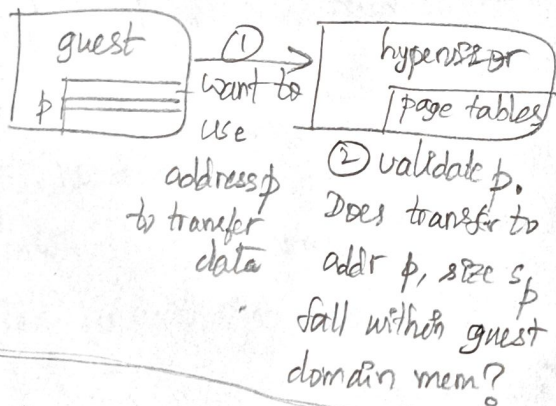 guest
p
①
want to
use
address p
to transfer
data
hypervisor
page tables
② validate p.
Does transfer to
addr p, size sp
fall within guest
domain mem?